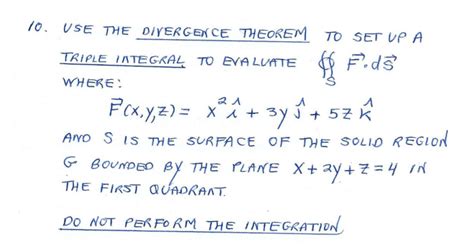 10. USE THE DIVERGENCE THEOREM TO SET UP A
TRIPLE INTEGRAL TO EVALUATE ∯ F⃗·dS⃗
S
WHERE:
F⃗(x,y,z) = x² î + 3y ĵ + 5z k̂
AND S IS THE SURFACE OF THE SOLID REGION
G BOUNDED BY THE PLANE x+2y+z=4 IN
THE FIRST QUADRANT.
DO NOT PERFORM THE INTEGRATION